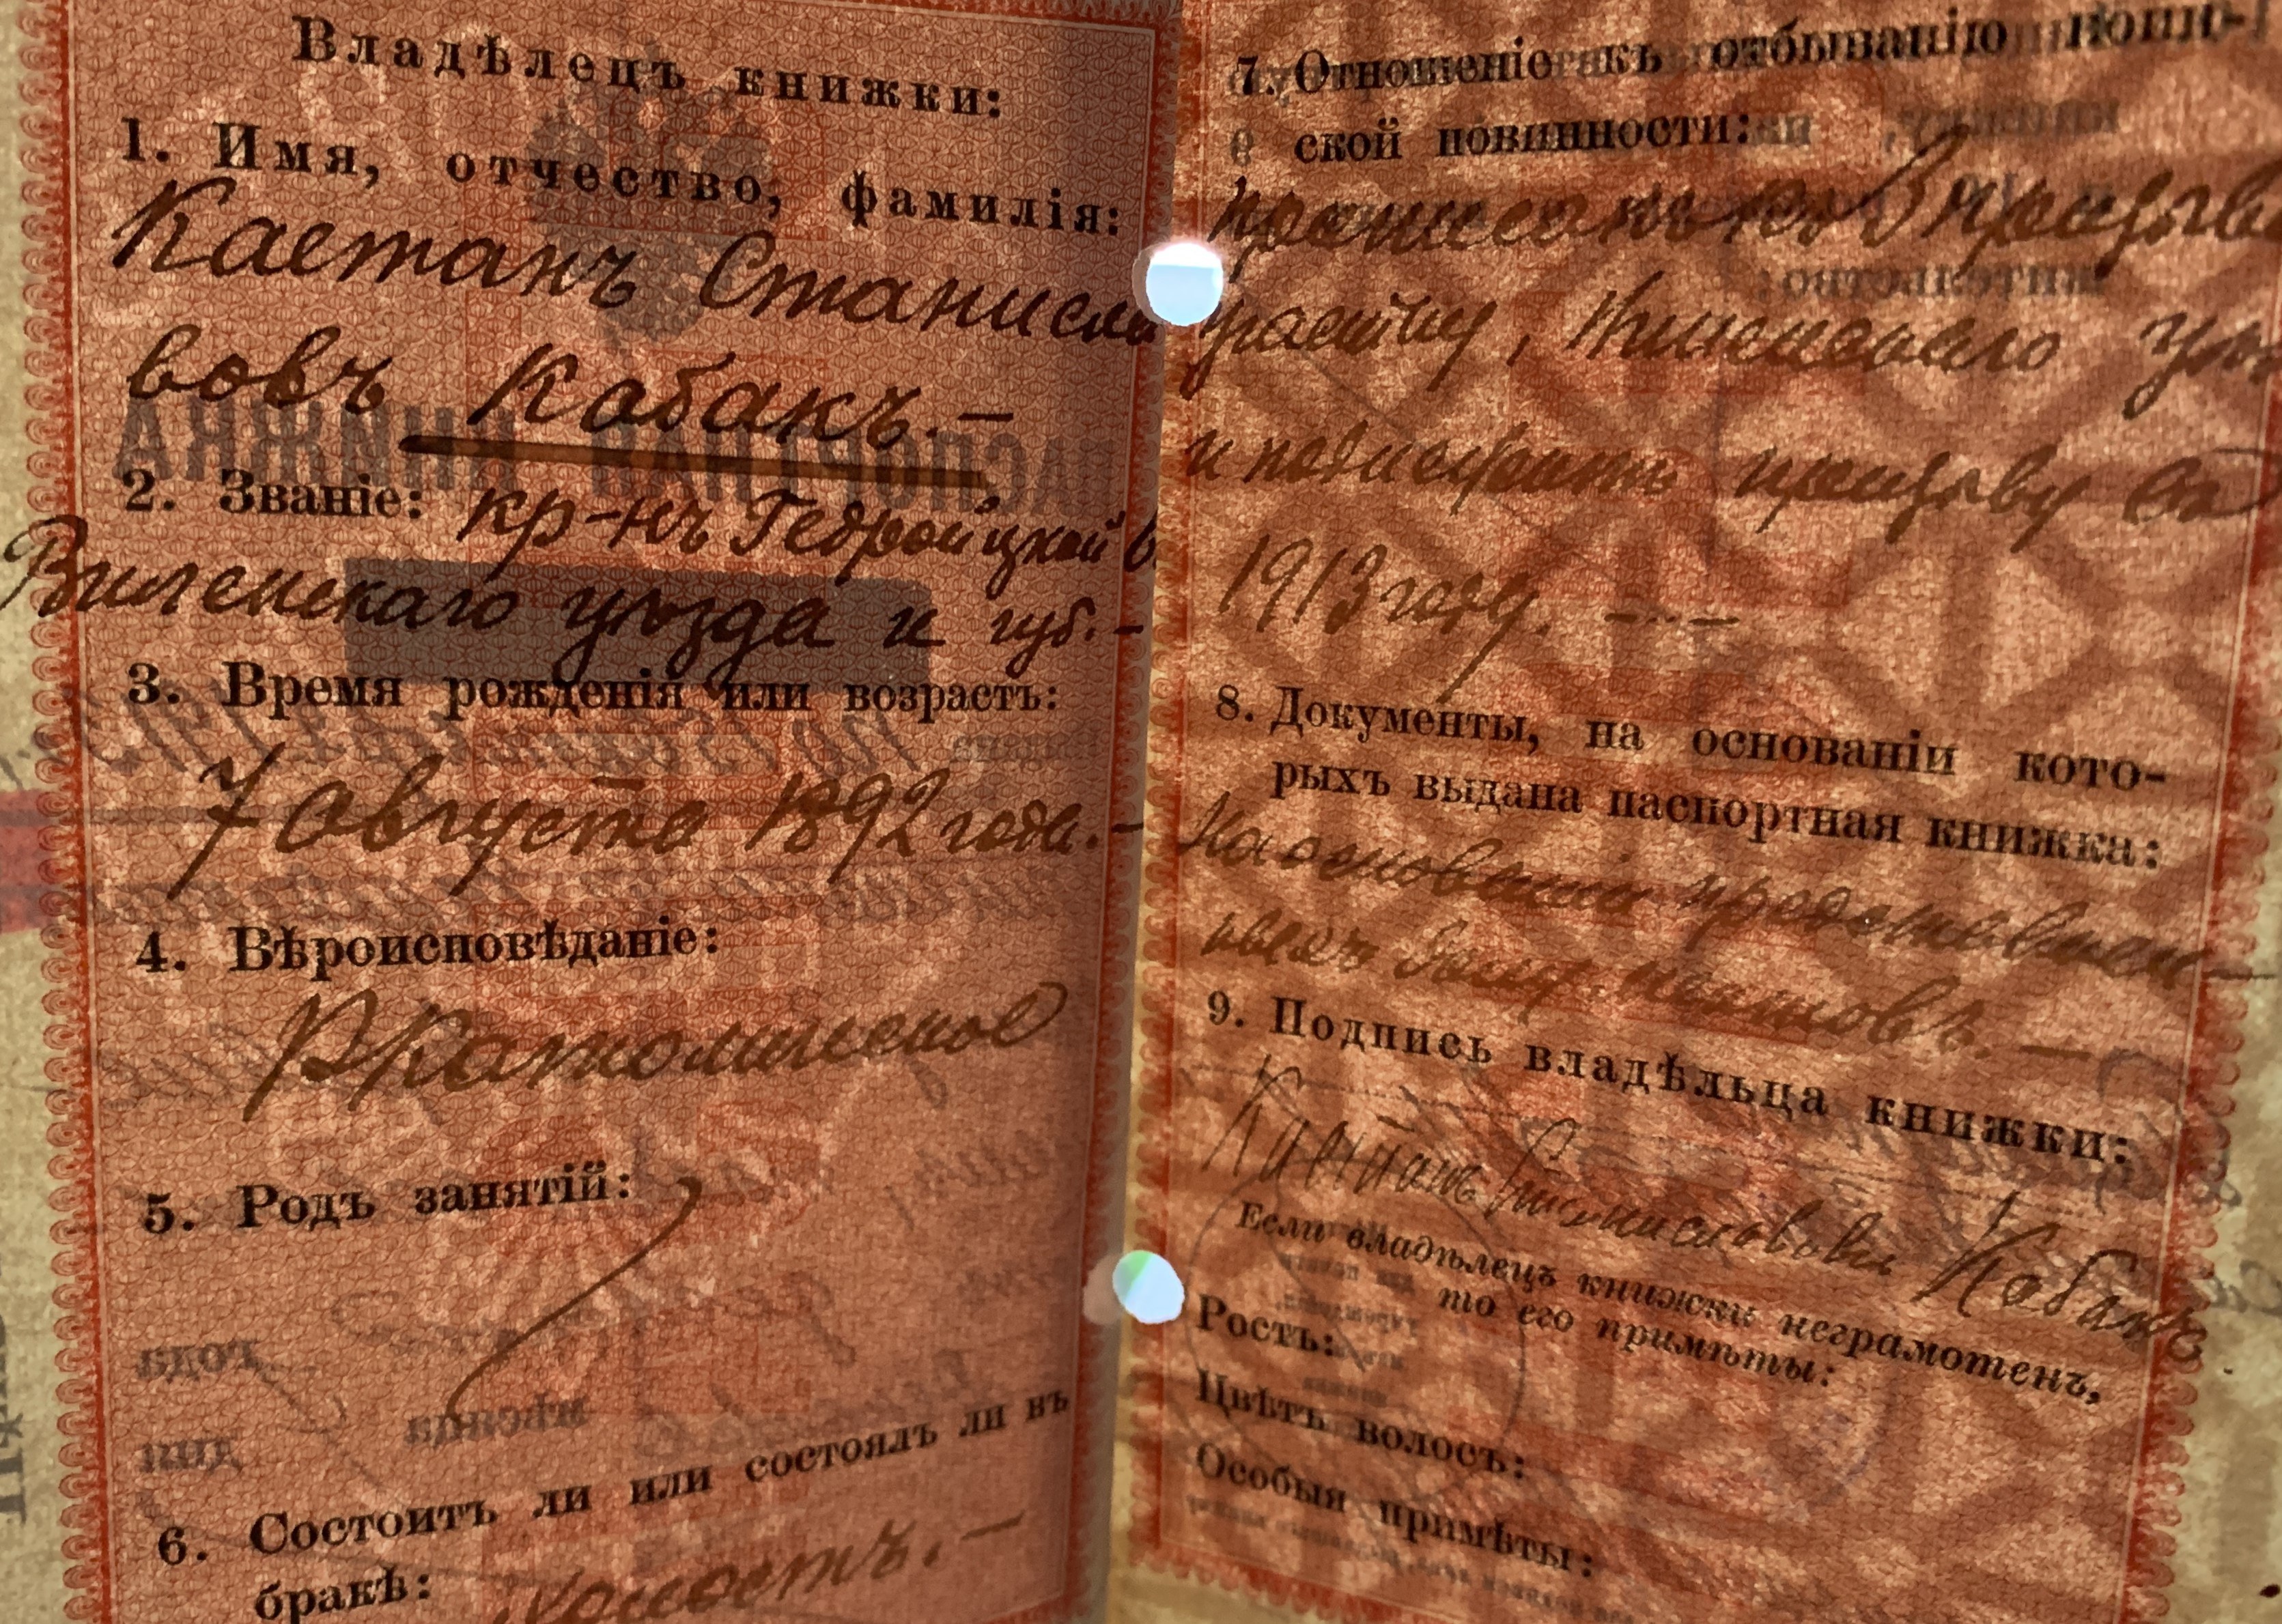 Владѣлецъ книжки:
1. Имя, отчество, фамилія:
Каетанъ Станисла
вовъ Кабакъ. —
2. Званіе: кр-нъ Гедройцкой в.
Виленскаго уѣзда и губ. —
3. Время рожденія или возрастъ:
7 августа 1892 года. —
4. Вѣроисповѣданіе:
Р Католическое
5. Родъ занятій:
6. Состоитъ ли или состоялъ ли въ
бракѣ: холостъ. —
7. Отношеніе къ отбыванію воин-
ской повинности:
участку, уѣз
и подлежитъ призыву въ
1913 году. —
8. Документы, на основаніи кото-
рыхъ выдана паспортная книжка:
На основаніи
9. Подпись владѣльца книжки:
Каетанъ Станиславовъ Кабакъ.
Если владѣлецъ книжки неграмотенъ,
то его примѣты:
Ростъ:
Цвѣтъ волосъ:
Особыя примѣты: